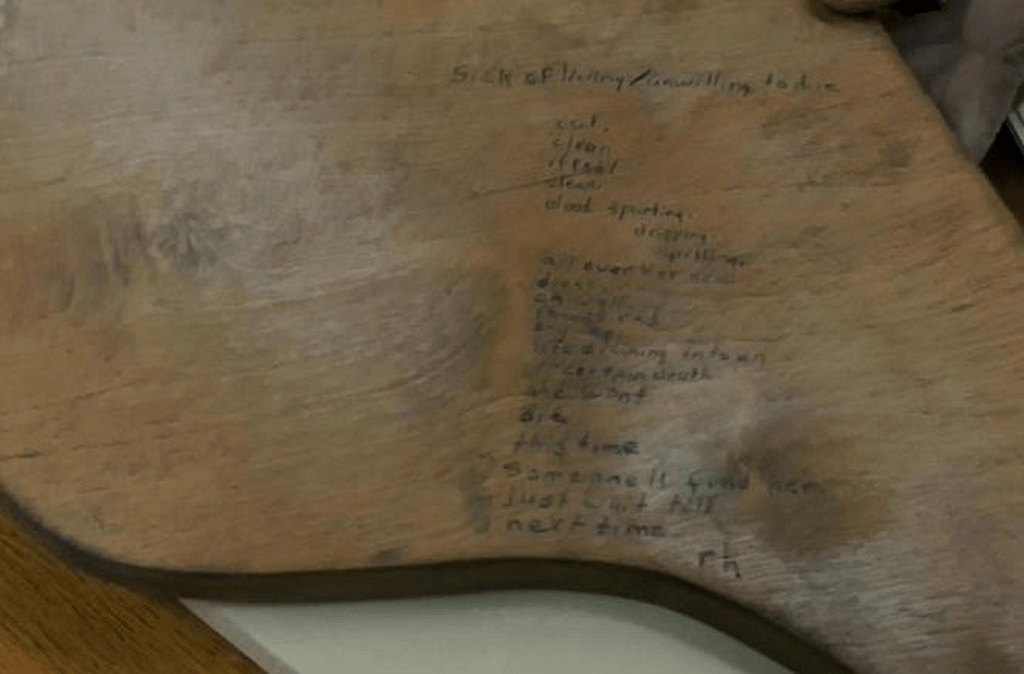 Sick of living/unwilling to die
cut.
clean
if red
clean.
blood spurting.
dripping.
spilling.
all over her new
dress.
life draining into an
uncertain death
she wont
die
this time
Someone'll find her
just wait till
next time.
rh